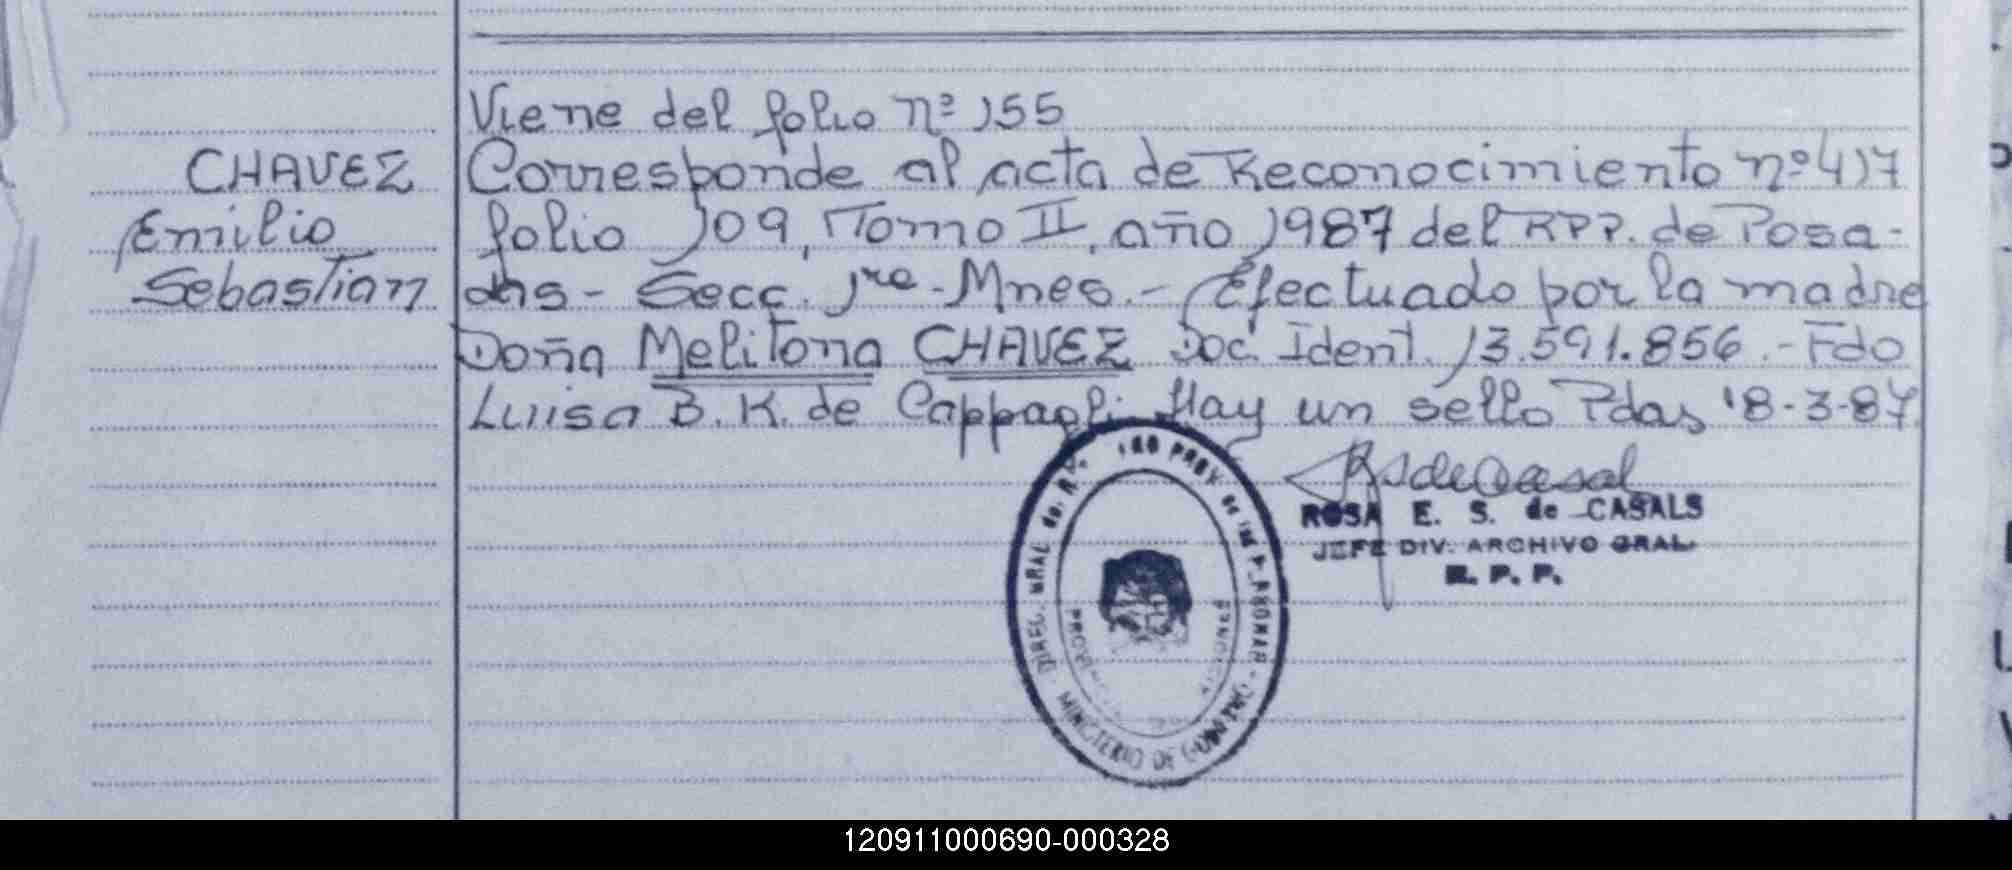 Viene del folio nº 155
CHAVEZ Corresponde al acta de Reconocimiento nº 417
Emilio folio 109, Tomo II, año 1987 del RPP. de Posa-
Sebastian das - Secc. 1ra - Mnes. - Efectuado por la madre
Doña Melitona CHAVEZ Doc. Ident. 13.591.856.- Fdo
Luisa B. K. de Cappagli Hay un sello Pdas 18-3-87
ROSA E. S. de CASALS
JEFE DIV. ARCHIVO GRAL.
R. P. P.
MINISTERIO DE GOBIERNO
120911000690-000328